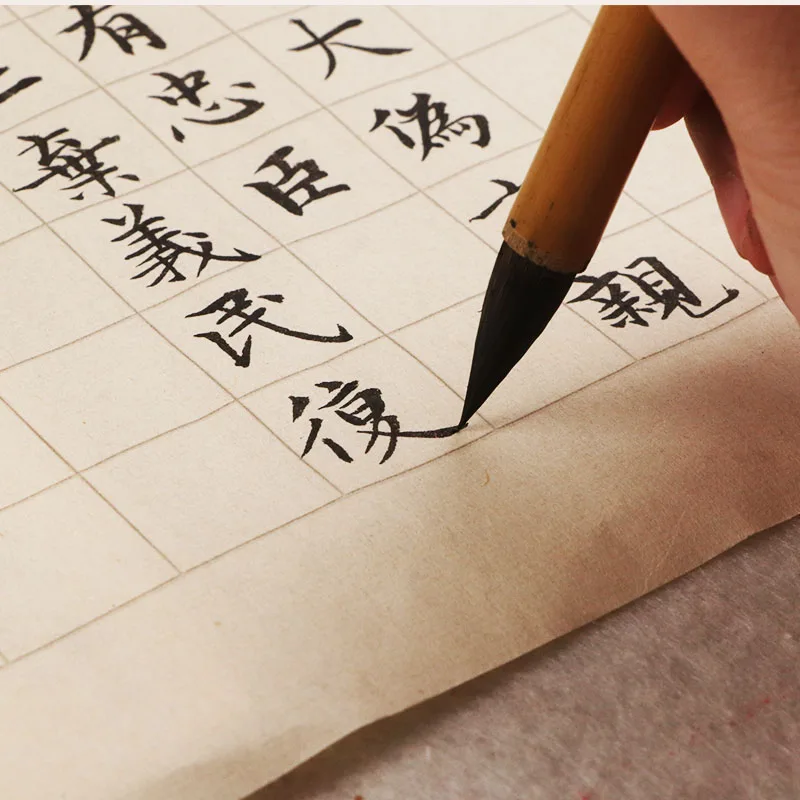 大偽親
有忠臣
棄義民復